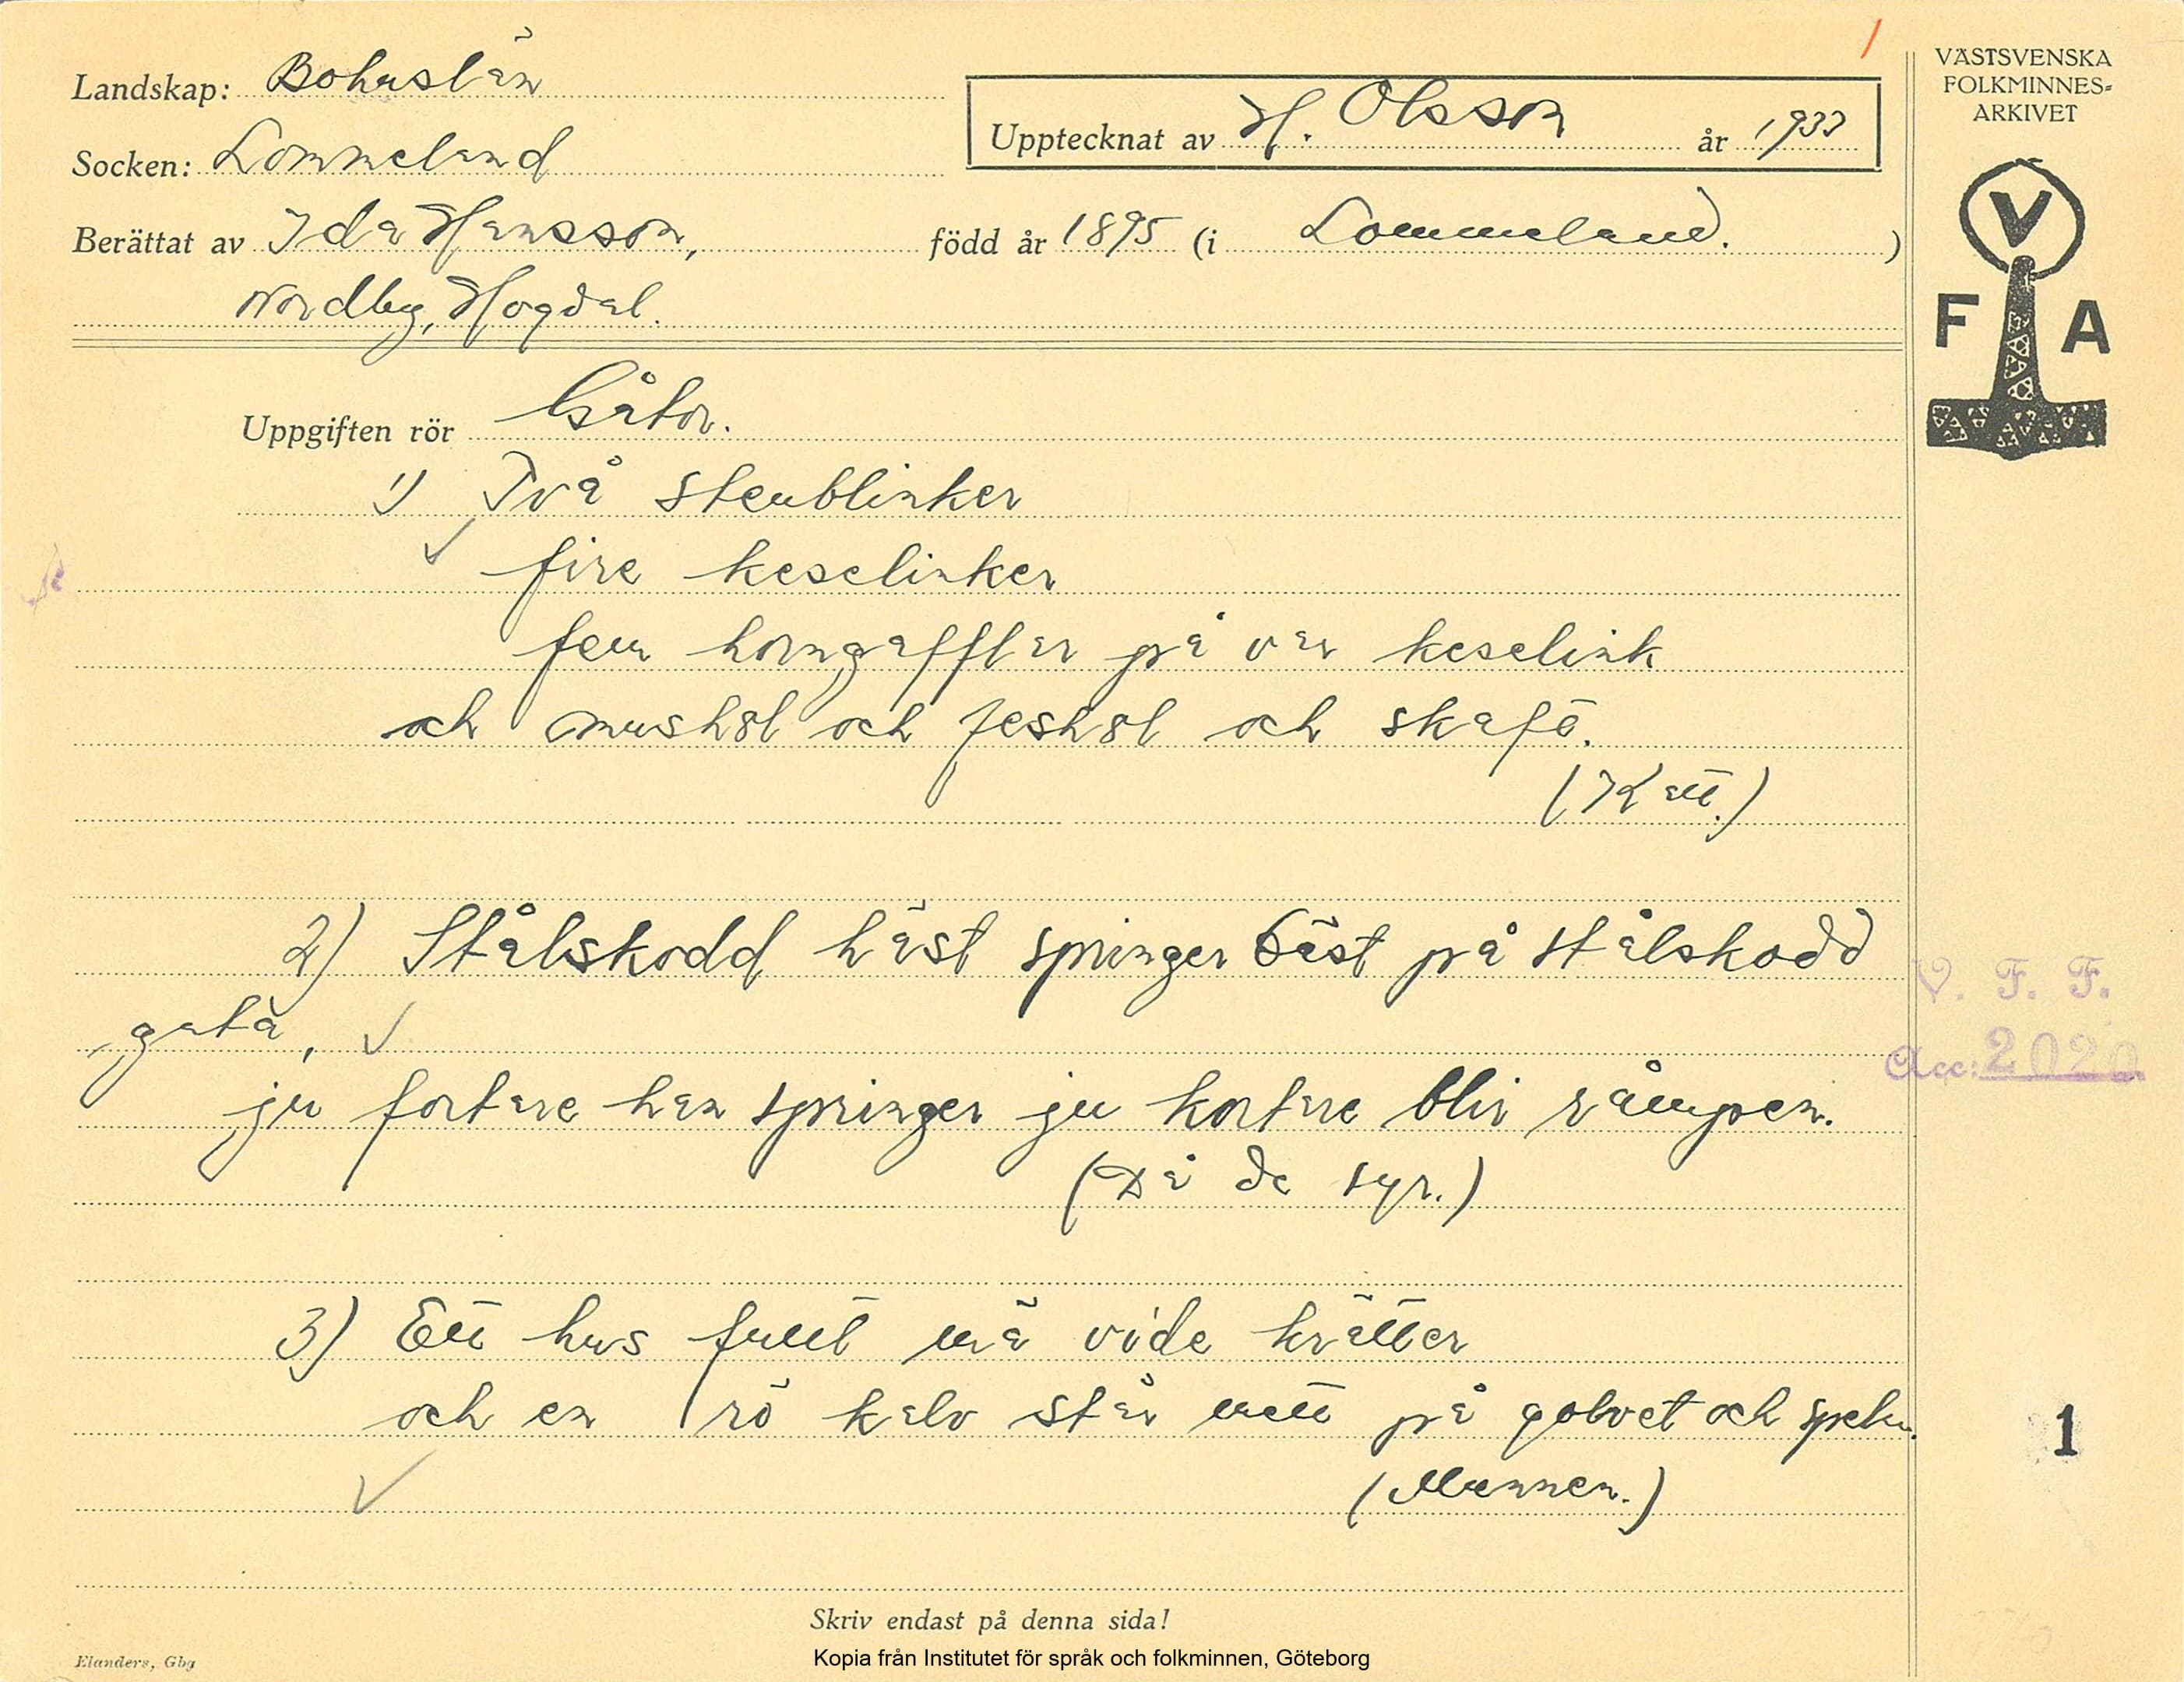 Landskap: Bohuslän
Upptecknat av H. Olsson år 1933
VÄSTSVENSKA
FOLKMINNES-
ARKIVET
Socken: Lommeland
Berättat av Ida Hansson, född år 1895 (i Lommeland.)
Nordby, Hogdal.
V
F A
Uppgiften rör Gåtor.
1) Två stenblinker
fire keselinker
fem horngafflar på var keselink
och mushol och feshol och skafö.
(Katt.)
2) Stålskodd häst springer bäst på stålskodd
gata,
ju fortare han springer ju kortare blir råmpen.
(Då de syr.)
V. F. F.
Acc: 2020
3) Ett hus fullt mä vide krätter
och en rö kalv står mitt på golvet och
(Munnen.)
1
Skriv endast på denna sida!
Elanders, Gbg
Kopia från Institutet för språk och folkminnen, Göteborg